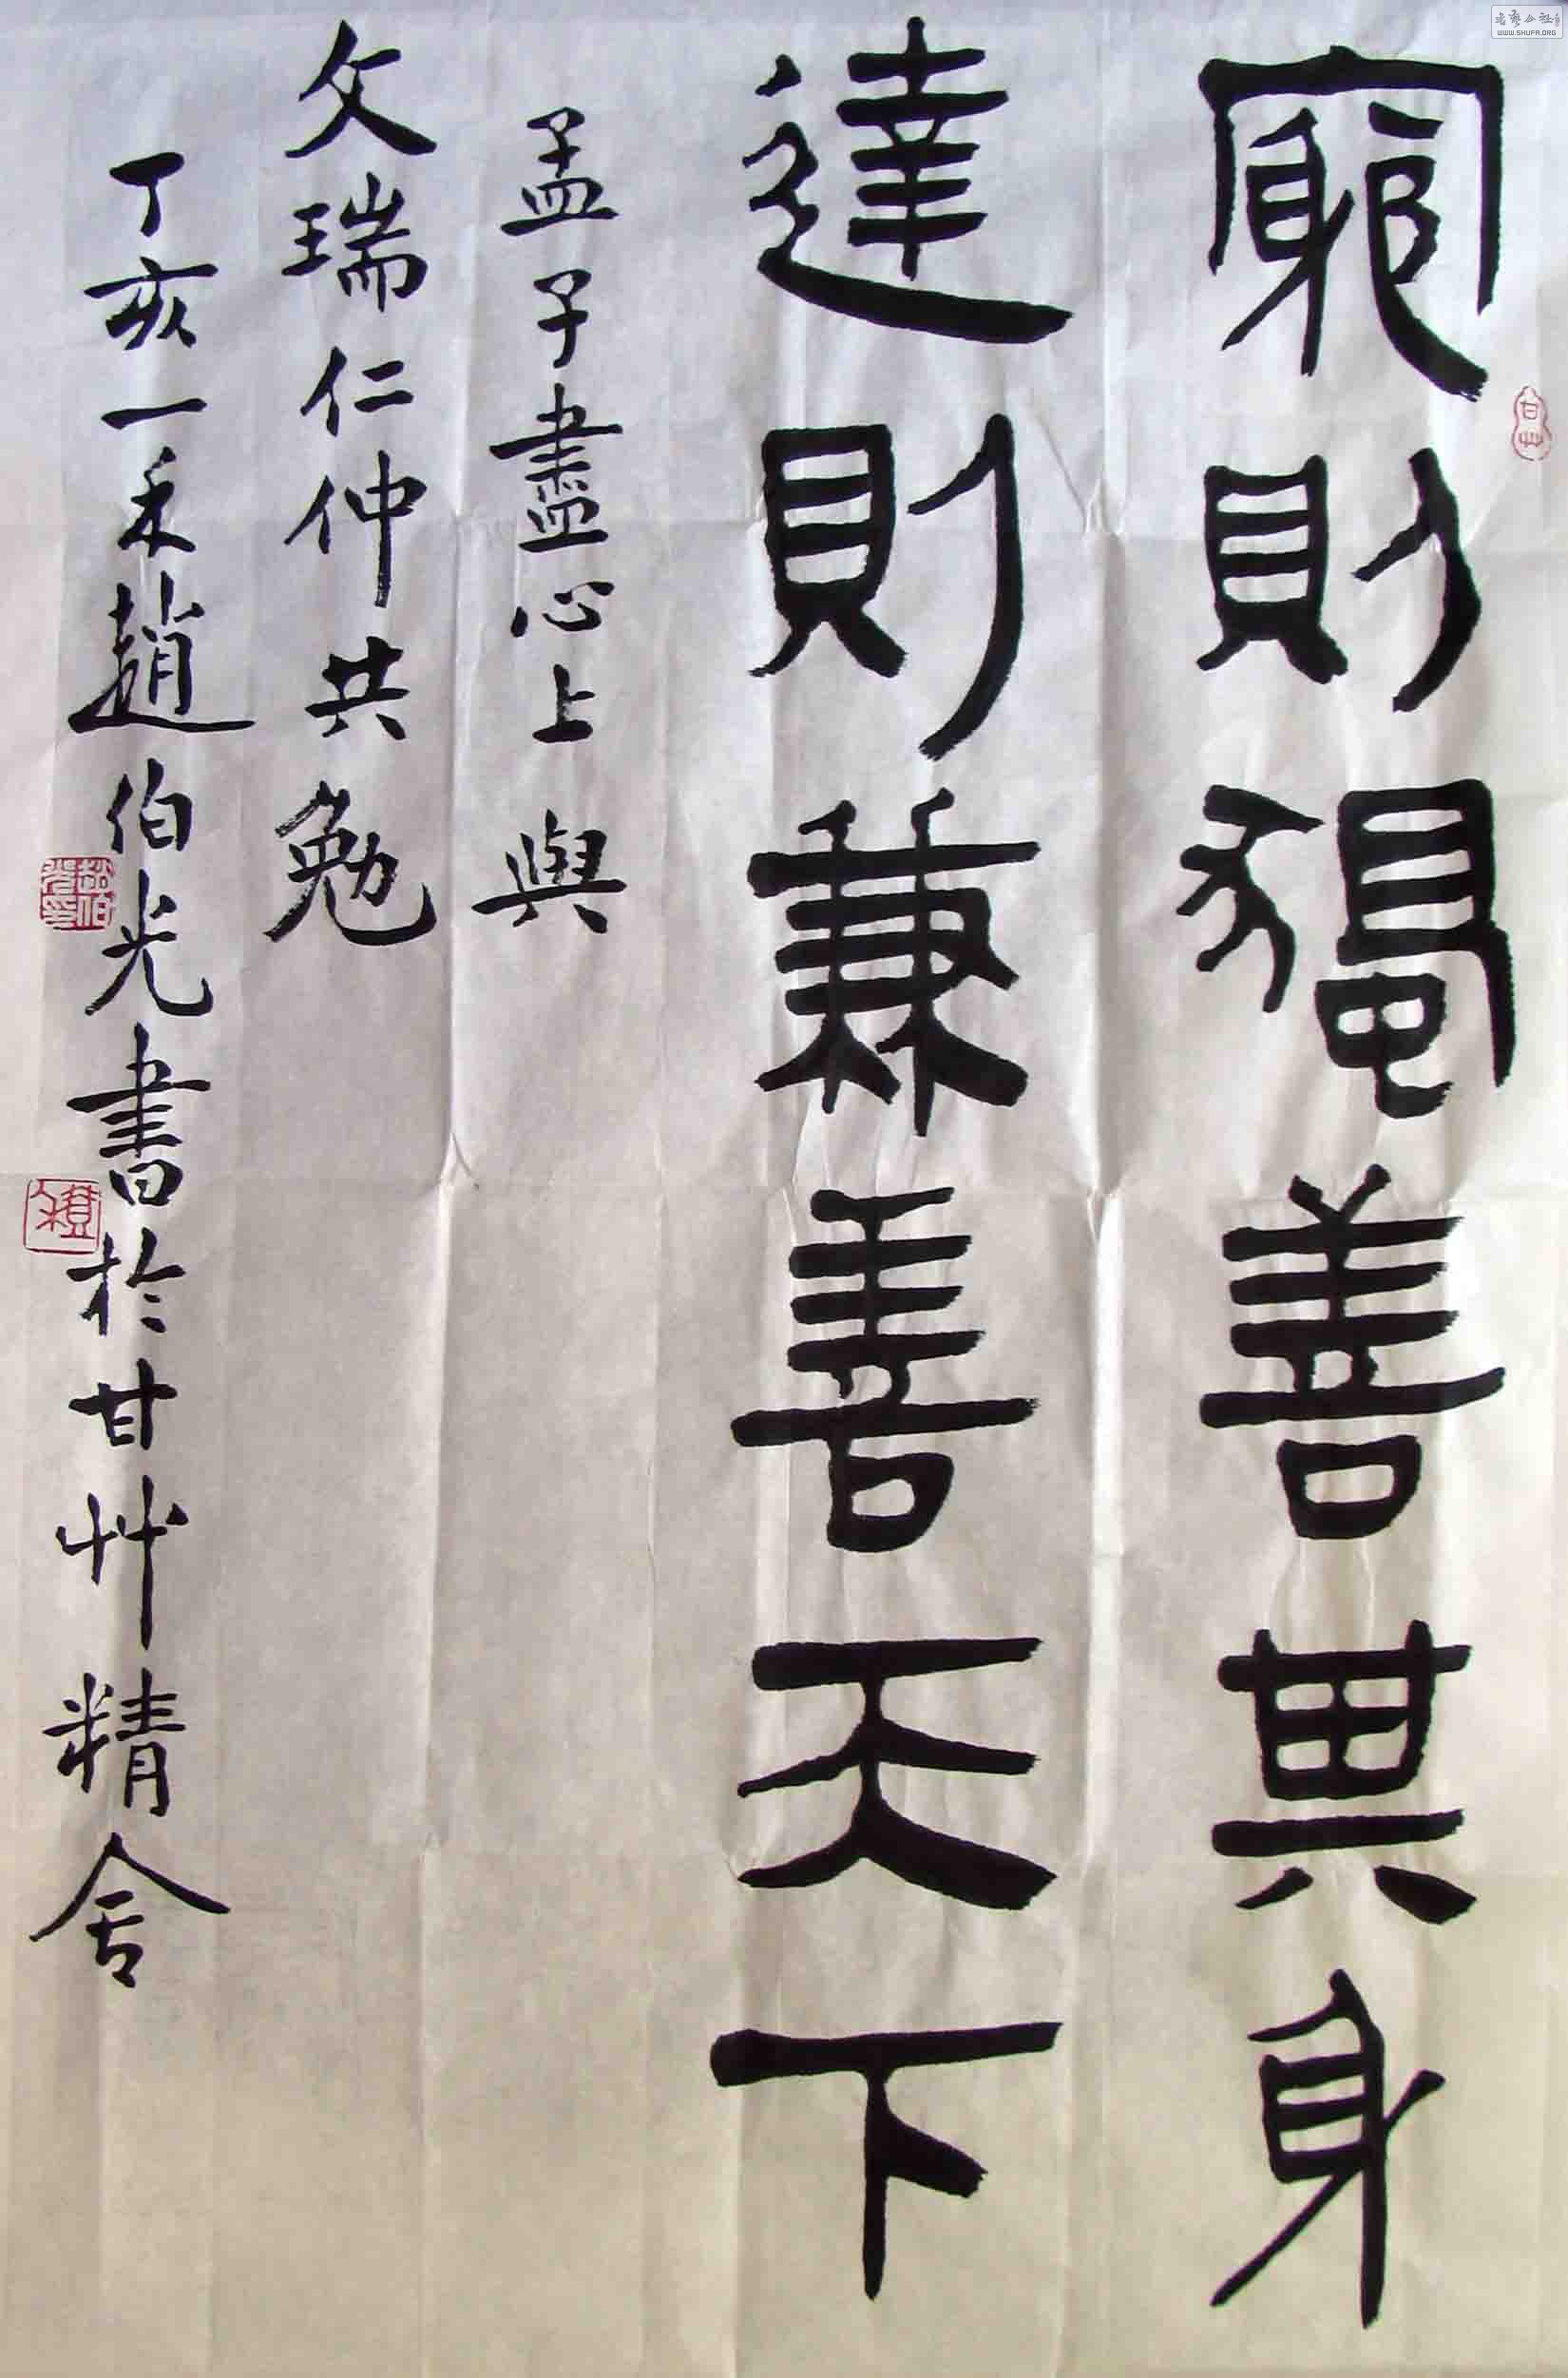 窮則獨善其身
達則兼善天下
孟子盡心上 與
文瑞仁仲共勉
丁亥一禾趙伯光書於甘艸精舍
甘艸
趙伯光印
WWW.SHUFA.ORG